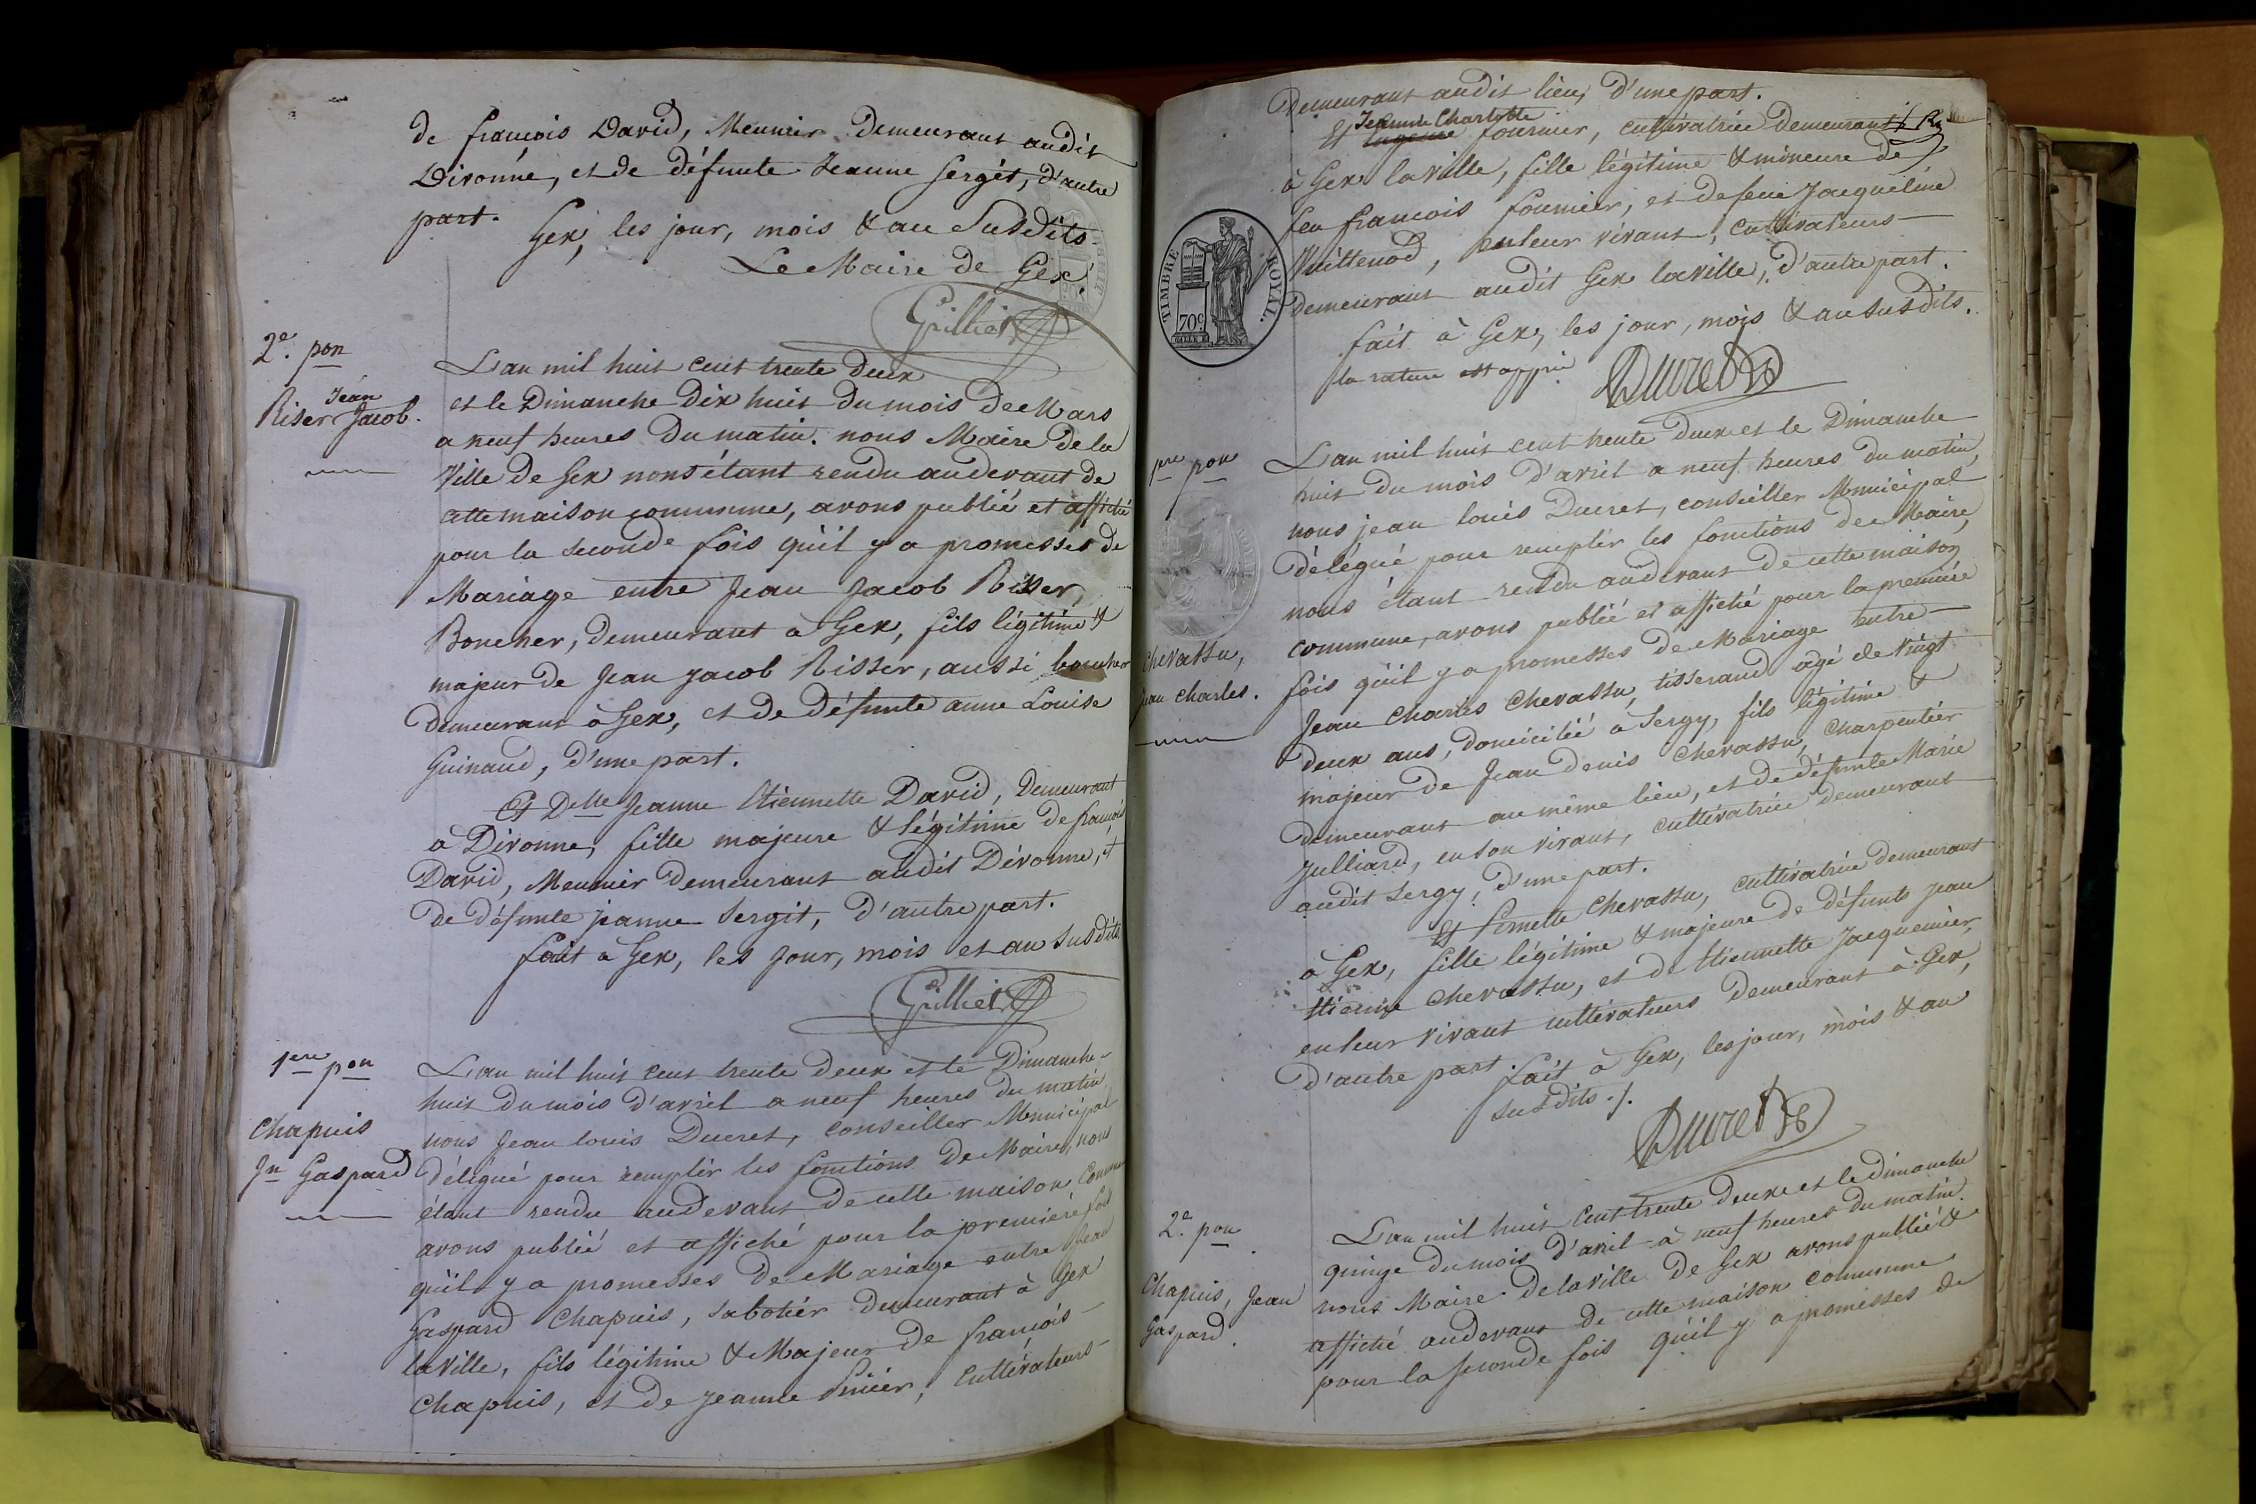 de françois David, Meunier demeurant audit
Divonne, et de défunte Jeanne Sergit, d'autre
part.
Gex, les jour, mois & an Susdits.
Le Maire de Gex
Grilliet
2e. pon
Riser Jean Jacob.
L'an mil huit cent trente deux
et le Dimanche dix huit du mois de Mars
a neuf heures du matin. nous Maire de la
Ville de Gex nous étant rendu audevant de
cette maison commune, avons publié et affiché
pour la seconde fois qu'il y a promesses de
Mariage entre Jean Jacob Risser,
Boucher, demeurant à Gex, fils légitime &
majeur de Jean Jacob Risser, aussi boucher
demeurant à Gex, et de défunte anne Louise
Guinand, d'une part.
Et Delle Jeanne Etiennette David, demeurant
à Divonne, fille majeure & légitime de françois
David, Meunier demeurant audit Divonne, et
de défunte jeanne Sergit, d'autre part.
fait à Gex, les jour, mois et an susdits
Grilliet
1ere pon
Chapuis
Jn Gaspard
L'an mil huit cent trente deux et le Dimanche
huit du mois d'avril a neuf heures du matin
nous Jean louis Ducret, conseiller Municipal
délégué pour remplir les fonctions de Maire, nous
étant rendu audevant de cette maison Commune
avons publié et affiché pour la première fois
qu'il y a promesses de Mariage entre Jean
Gaspard Chapuis, sabotier demeurant à Gex
la ville, fils légitime & Majeur de françois
Chapuis, et de Jeanne, Cultivateurs
demeurant audit lieu, d'une part.
Jeanne Charlotte
Et fournier, cultivatrice demeurant
à Gex la ville, fille légitime & mineure de
feu françois fournier, et de feue Jacqueline
Vuittenod, en leur vivant, cultivateurs
demeurant audit Gex la ville, d'autre part.
fait à Gex, les jour, mois & an susdits.
la rature est app
Ducret
TIMBRE ROYAL.
70c
1ere pon
Chevassu,
Jean Charles.
L'an mil huit cent trente deux et le Dimanche
huit du mois d'avril a neuf heures du matin,
nous jean louis Ducret, conseiller Municipal
délégué pour remplir les fonctions de Maire,
nous étant rendu audevant de cette maison
commune, avons publié et affiché pour la première
fois qu'il y a promesses de Mariage entre
Jean Charles Chevassu, tisserand agé de vingt
deux ans, domicilié à Sergy, fils légitime &
majeur de Jean denis Chevassu, charpentier
demeurant au même lieu, et de défunte Marie
Julliard, en son vivant, cultivatrice demeurant
audit Sergy, d'une part.
Et Pernette Chevassu, cultivatrice demeurant
à Gex, fille légitime & majeure de défunts Jean
Etienne Chevassu, et d'Etiennette Jacquemier,
en leur vivant cultivateurs demeurant à Gex,
d'autre part.
fait à Gex, les jour, mois & an
susdits ./.
Ducret
2e. pon
Chapuis, Jean
Gaspard.
L'an mil huit cent trente deux et le dimanche
quinze du mois d'avril à neuf heures du matin.
nous Maire de la ville de Gex avons publié &
affiché audevant de cette maison commune
pour la seconde fois qu'il y a promesses de